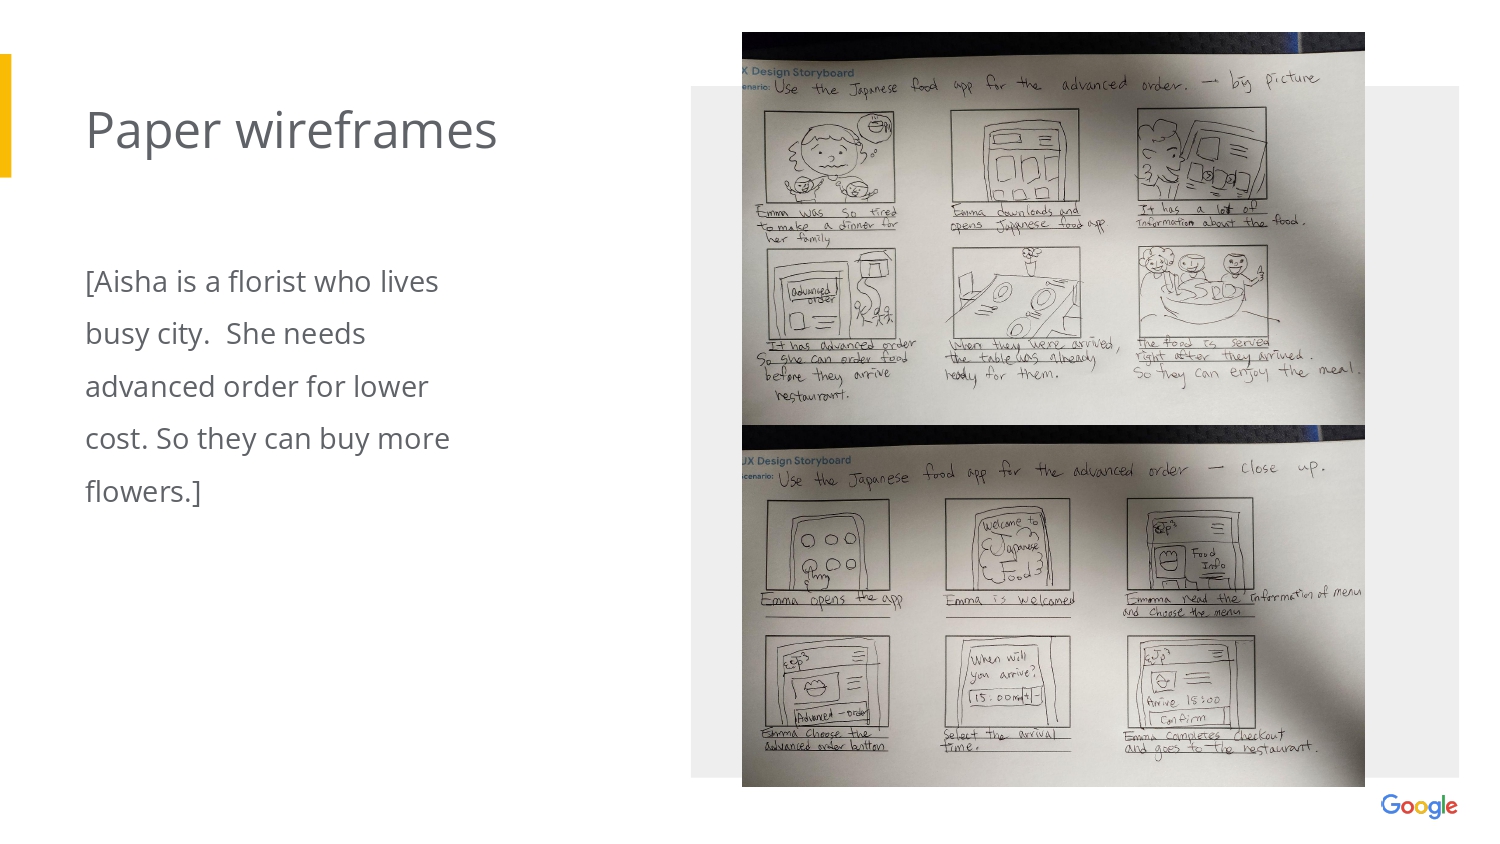 Paper wireframes
[Aisha is a florist who lives
busy city. She needs
advanced order for lower
cost. So they can buy more
flowers.]
X Design Storyboard
enario: Use the Japanese food app for the advanced order. — big picture
Emma was so tired
to make a dinner for
her family
Emma downloads and
opens Japanese food app
It has a lot of
information about the food.
advanced
order
It has advanced order
So she can order food
before they arrive
restaurant.
When they were arrived,
the table was already
ready for them.
The food is served
right after they arrived.
So they can enjoy the meal.
UX Design Storyboard
cenario: Use the Japanese food app for the advanced order — close up.
Welcome to
Japanese
Food
Food
Info
Emma opens the app
Emma is welcomed
Emma read the information of menu
and choose the menu
Advanced - order
When will
you arrive?
15:00
Arrive 15:00
Confirm
Emma choose the
advanced order button
Select the arrival
time.
Emma completes checkout
and goes to the restaurant.
Google